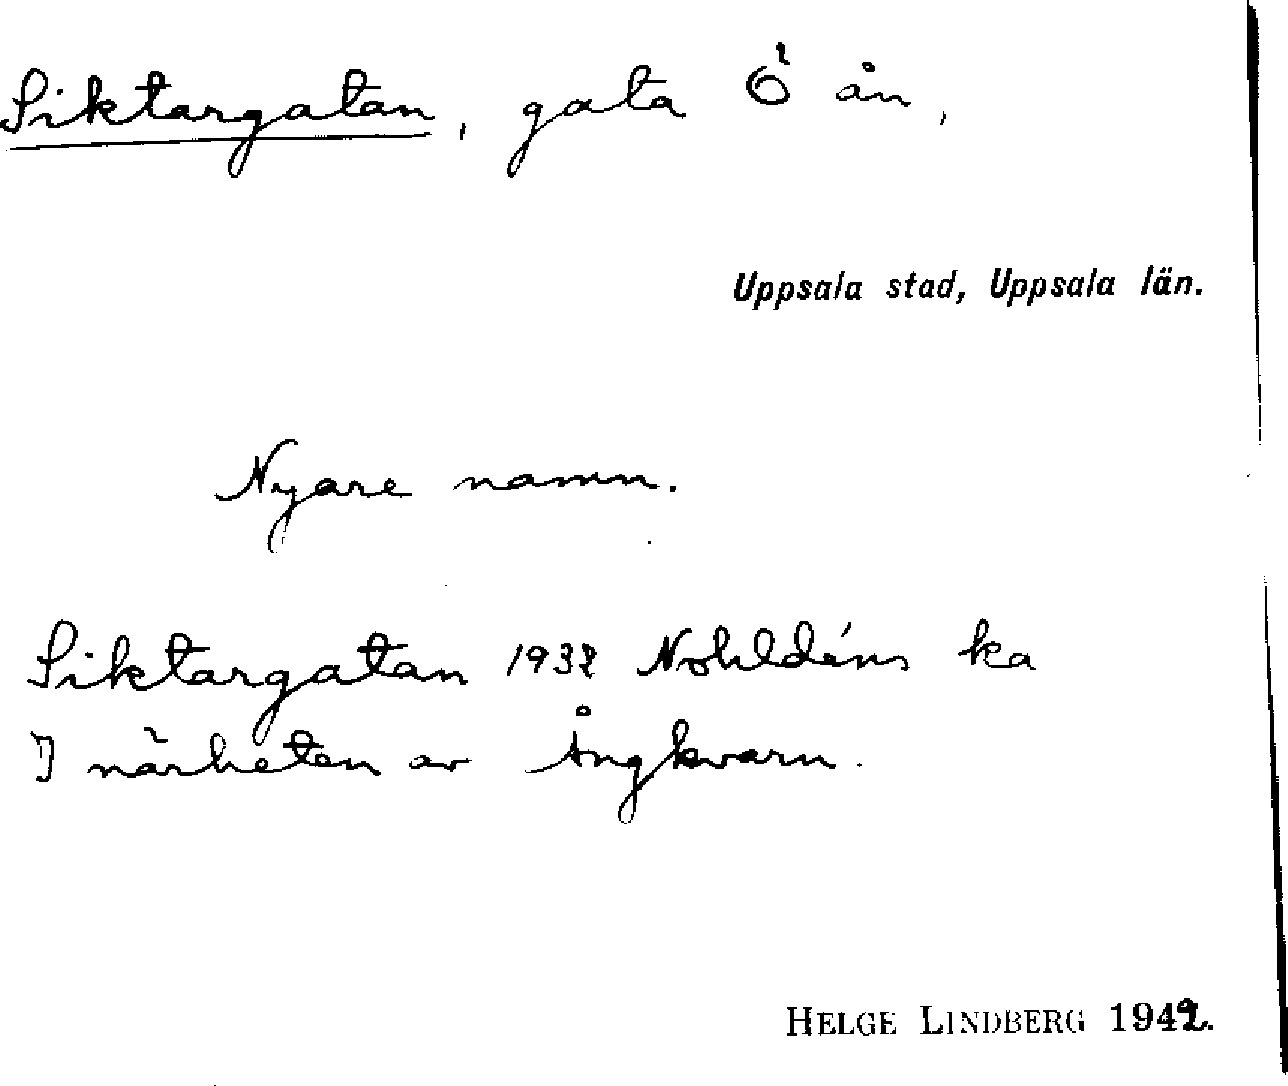 Siktargatan, gata Ö ån,
Uppsala stad, Uppsala län.
Nyare namn.
Siktargatan Nohldéns ka
I närheten av Ångkvarn.
HELGE LINDBERG